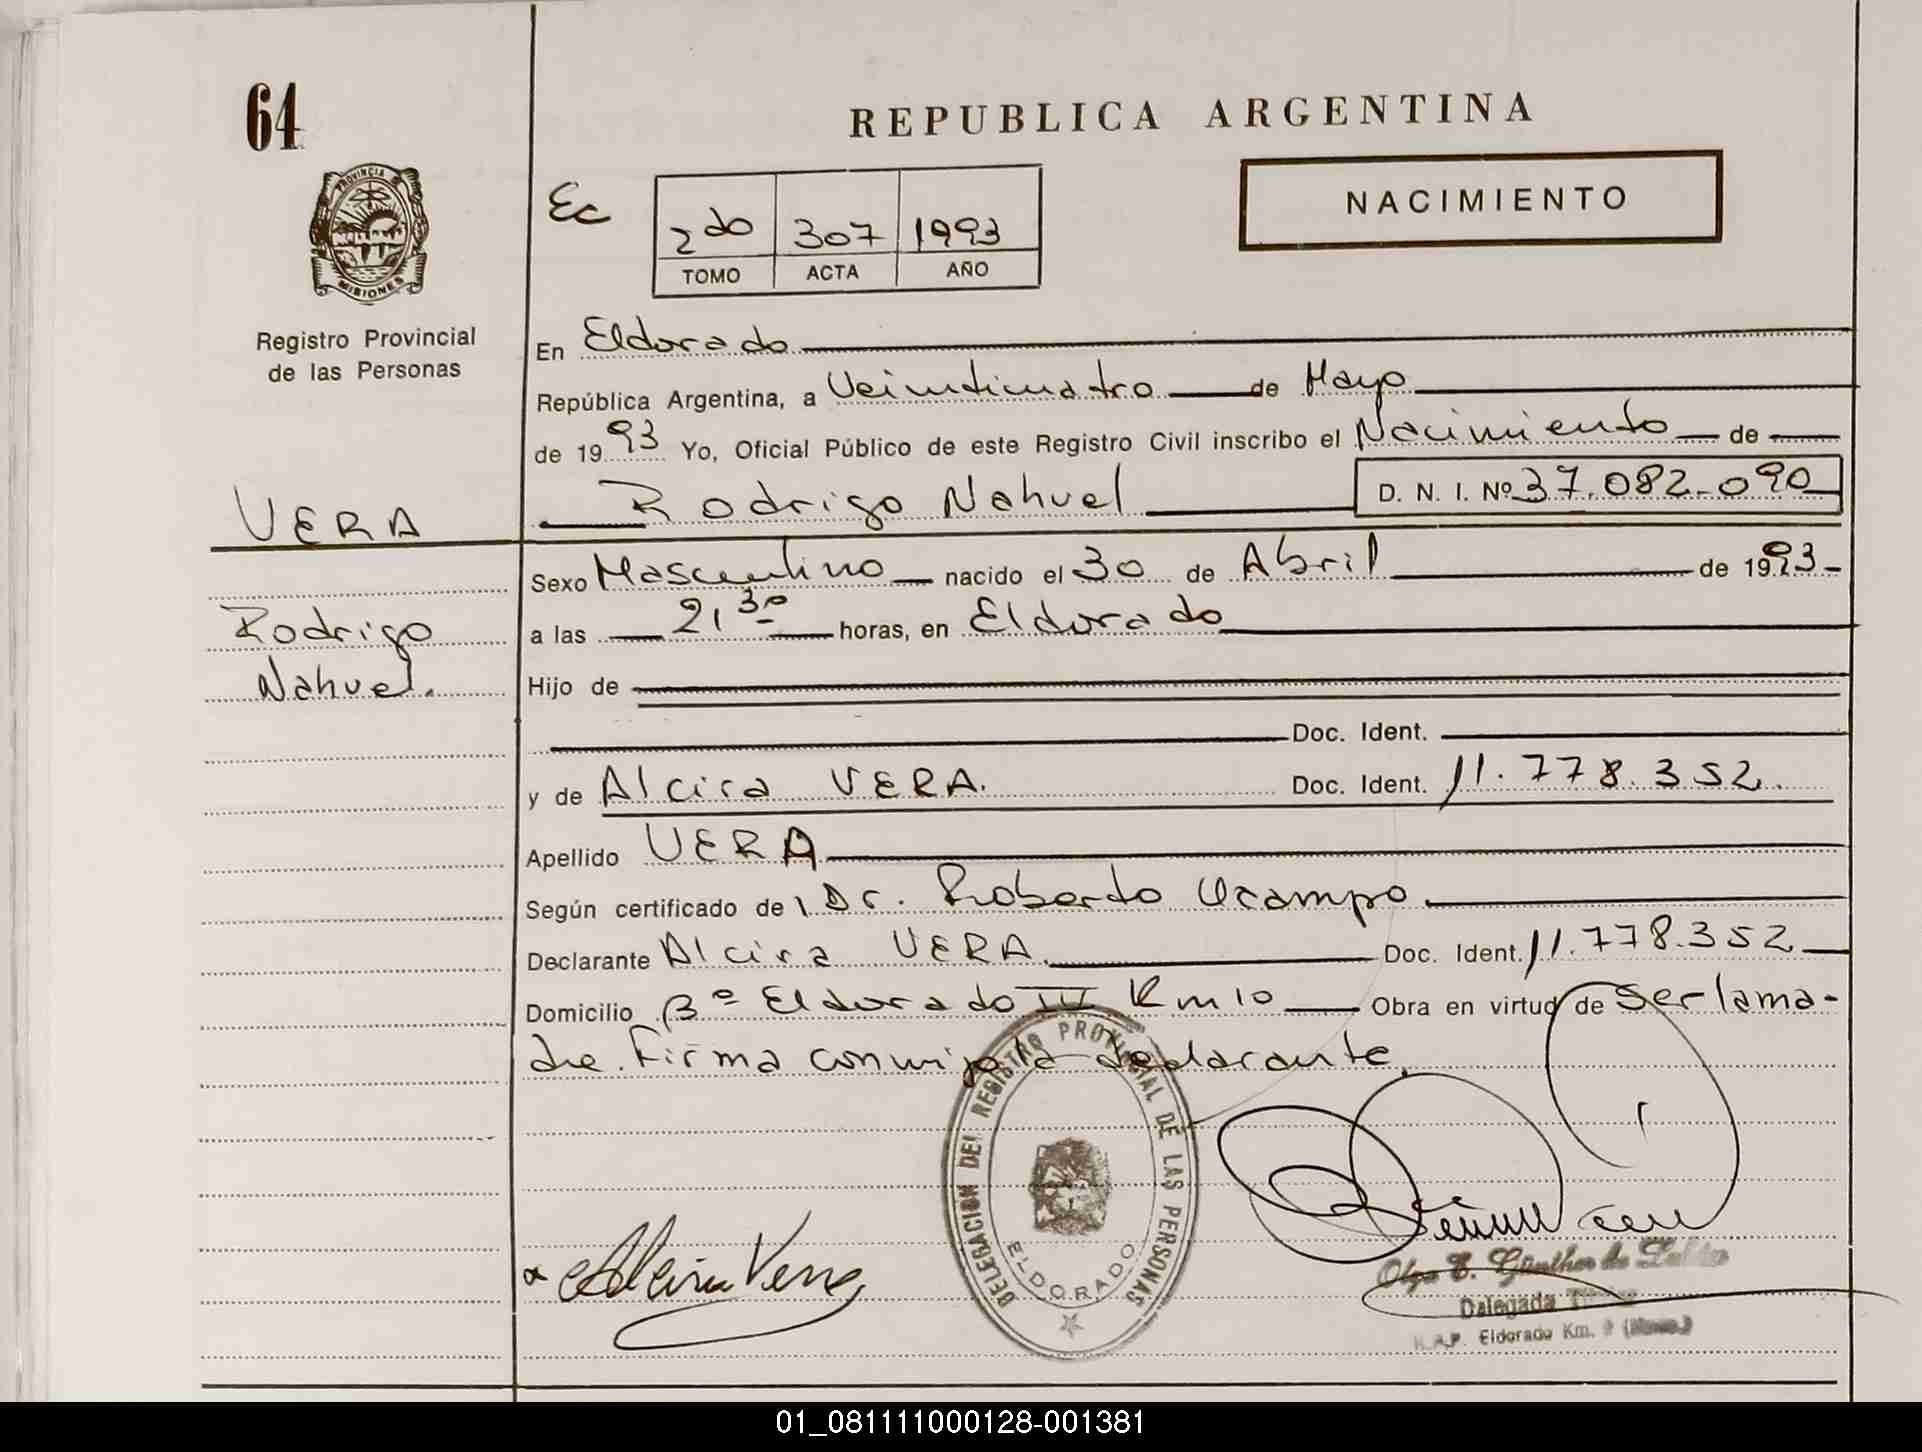 64
REPUBLICA ARGENTINA
PROVINCIA
MISIONES
Registro Provincial
de las Personas
Ec
2do 307 1993
TOMO ACTA AÑO
NACIMIENTO
En Eldorado
República Argentina, a Veinticuatro de Mayo
de 1993 Yo, Oficial Público de este Registro Civil inscribo el Nacimiento de
Rodrigo Nahuel D. N. I. Nº 37.082.090
VERA
Sexo Masculino nacido el 30 de Abril de 1993
Rodrigo
a las 21,30 horas, en Eldorado
Nahuel.
Hijo de
Doc. Ident.
y de Alcira VERA. Doc. Ident. 11.778.352.
Apellido VERA
Según certificado de Dr. Roberto Ocampo
Declarante Alcira VERA. Doc. Ident. 11.778.352
Domicilio Bº Eldorado III Km 10 Obra en virtud de ser la ma-
dre. Firma conmigo la declarante.
DELEGACION DEL REGISTRO PROVINCIAL DE LAS PERSONAS
ELDORADO
Alcira Vera
Olga E. Günther de
Delegada
R.A.P. Eldorado Km. 9
01_081111000128-001381